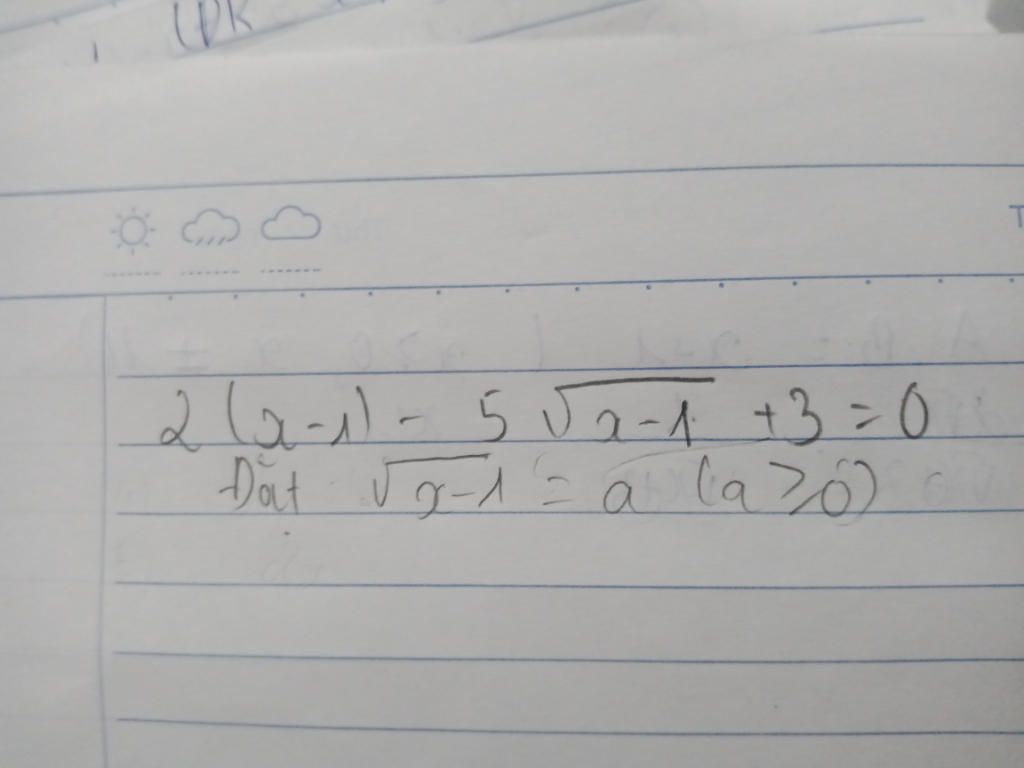 ĐK
2(x-1) - 5√(x-1) +3 = 0
Đặt √(x-1) = a (a ≥ 0)